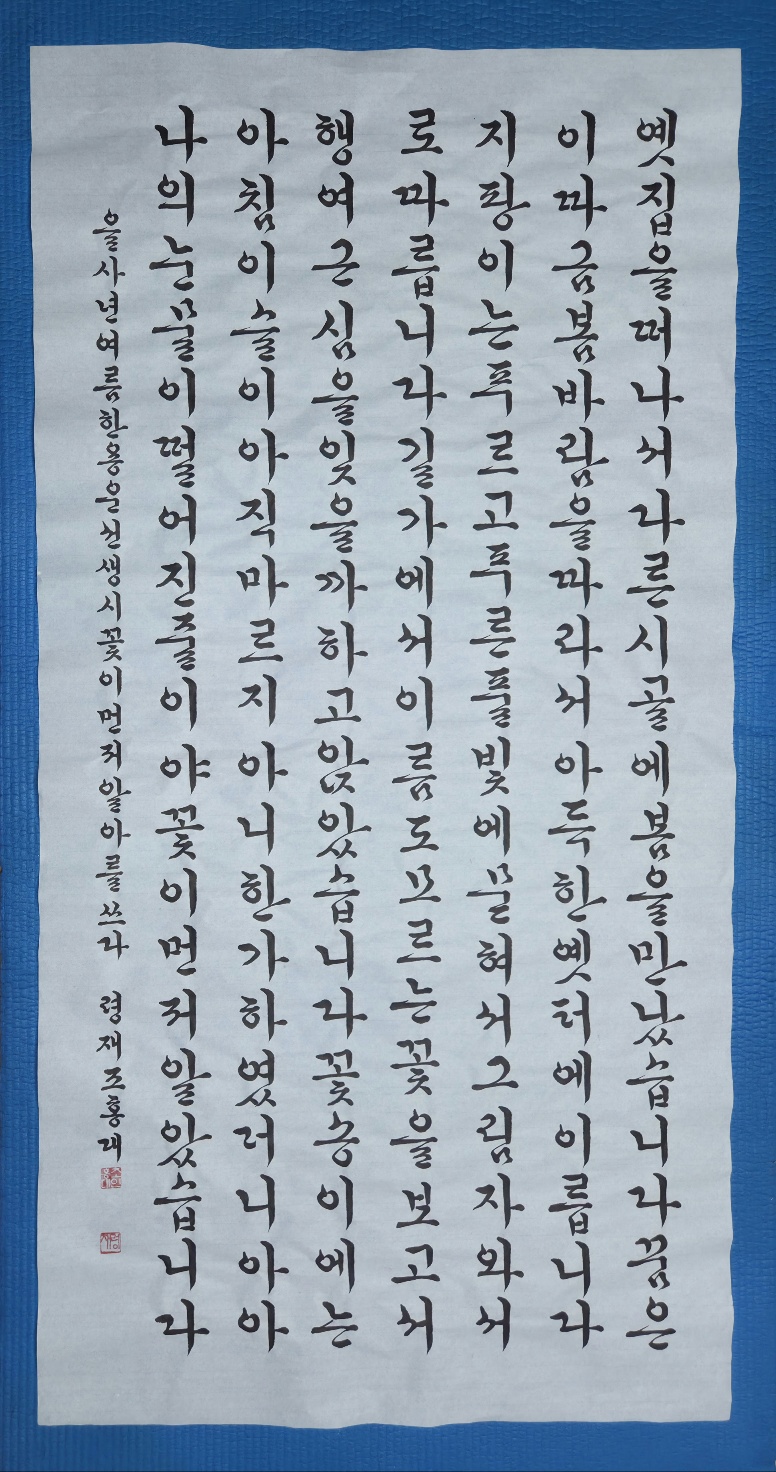 옛집을떠나서다른시골에봄을만났습니다꿈은
이따금봄바람을따라서아득한옛터에이릅니다
지팡이는푸르고푸른풀빛에묻혀서그림자와서
로따릅니다길가에서이름도모르는꽃을보고서
행여근심을잊을까하고앉았습니다꽃송이에는
아침이슬이아직마르지아니한가하였더니아아
나의눈물이떨어진줄이야꽃이먼저알았습니다
을사년여름한용운선생시꽃이먼저알아를쓰다 령재조홍래